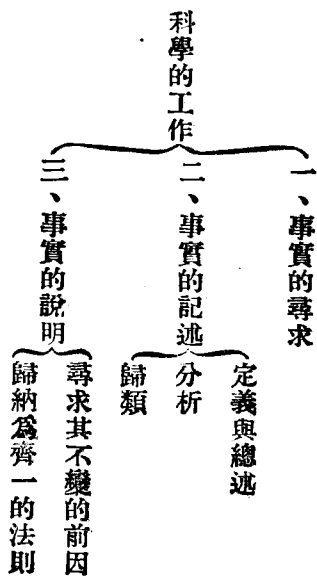 科學的工作
一、事實的尋求
二、事實的記述
定義與總述
分析
歸類
三、事實的說明
尋求其不變的前因
歸納爲齊一的法則